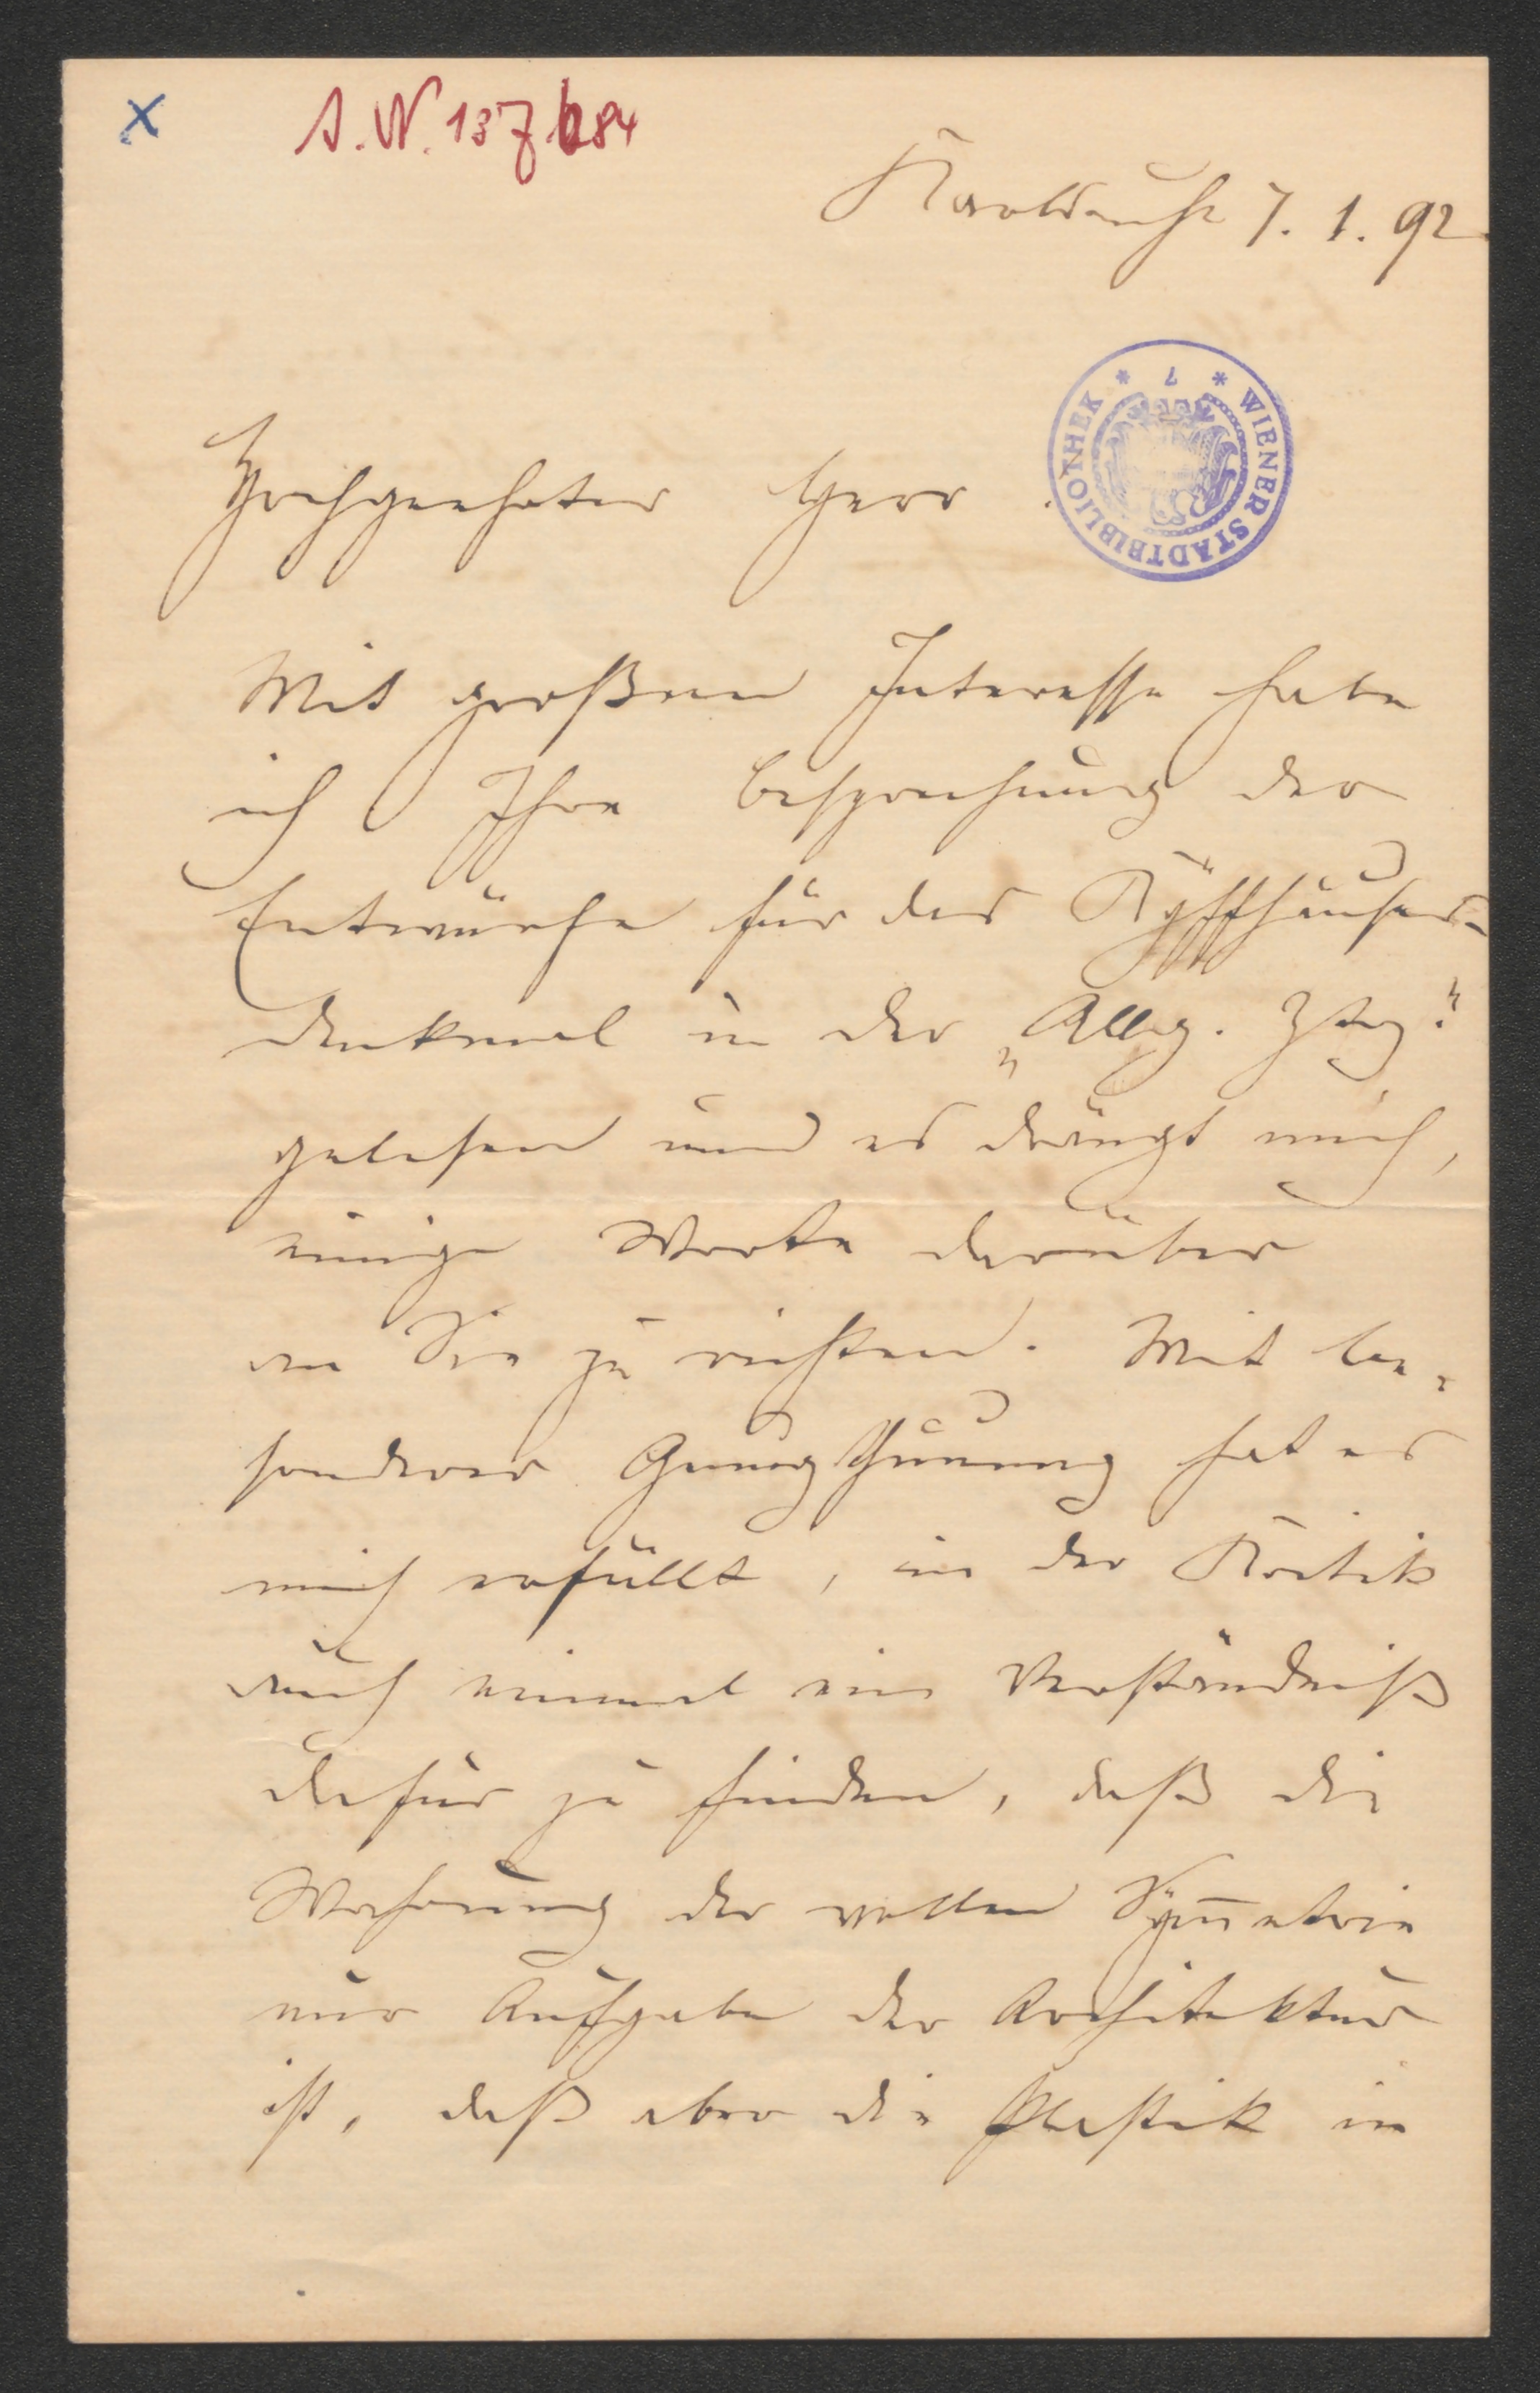 x
J.N. 137.684
Karlsruhe 7. 1. 92.
* WIENER STADTBIBLIOTHEK * 7
Hochgeehrter Herr
Mit großem Interesse habe
ich Ihre Besprechung der
Entwürfe für das Kÿffhäuser-
denkmal in der „Allg. Ztg“
gelesen und es drängt mich,
einige Worte darüber
an Sie zu richten. Mit be-
sonderer Genugthuung hat es
mich erfüllt, in der Kritik
auch einmal ein Verständniß
dafür zu finden, daß die
Wahrung der vollen Sym̅etrie
nur Aufgabe der Architektur
ist, daß aber die Plastik in